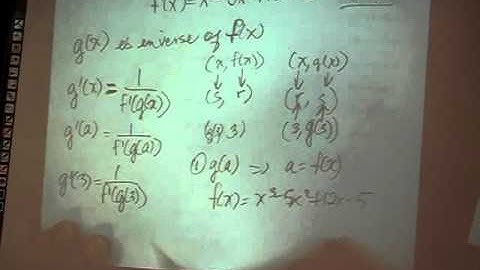 g(x) is inverse of f(x)
g'(x) = 1/f'(g(x))
(x, f(x)) (x, g(x))
(s, r)
g'(a) = 1/f'(g(a))
(3, g(3))
g'(3) = 1/f'(g(3))
① g(a) ⇒ a = f(x)
f(x) = x³-5x²+